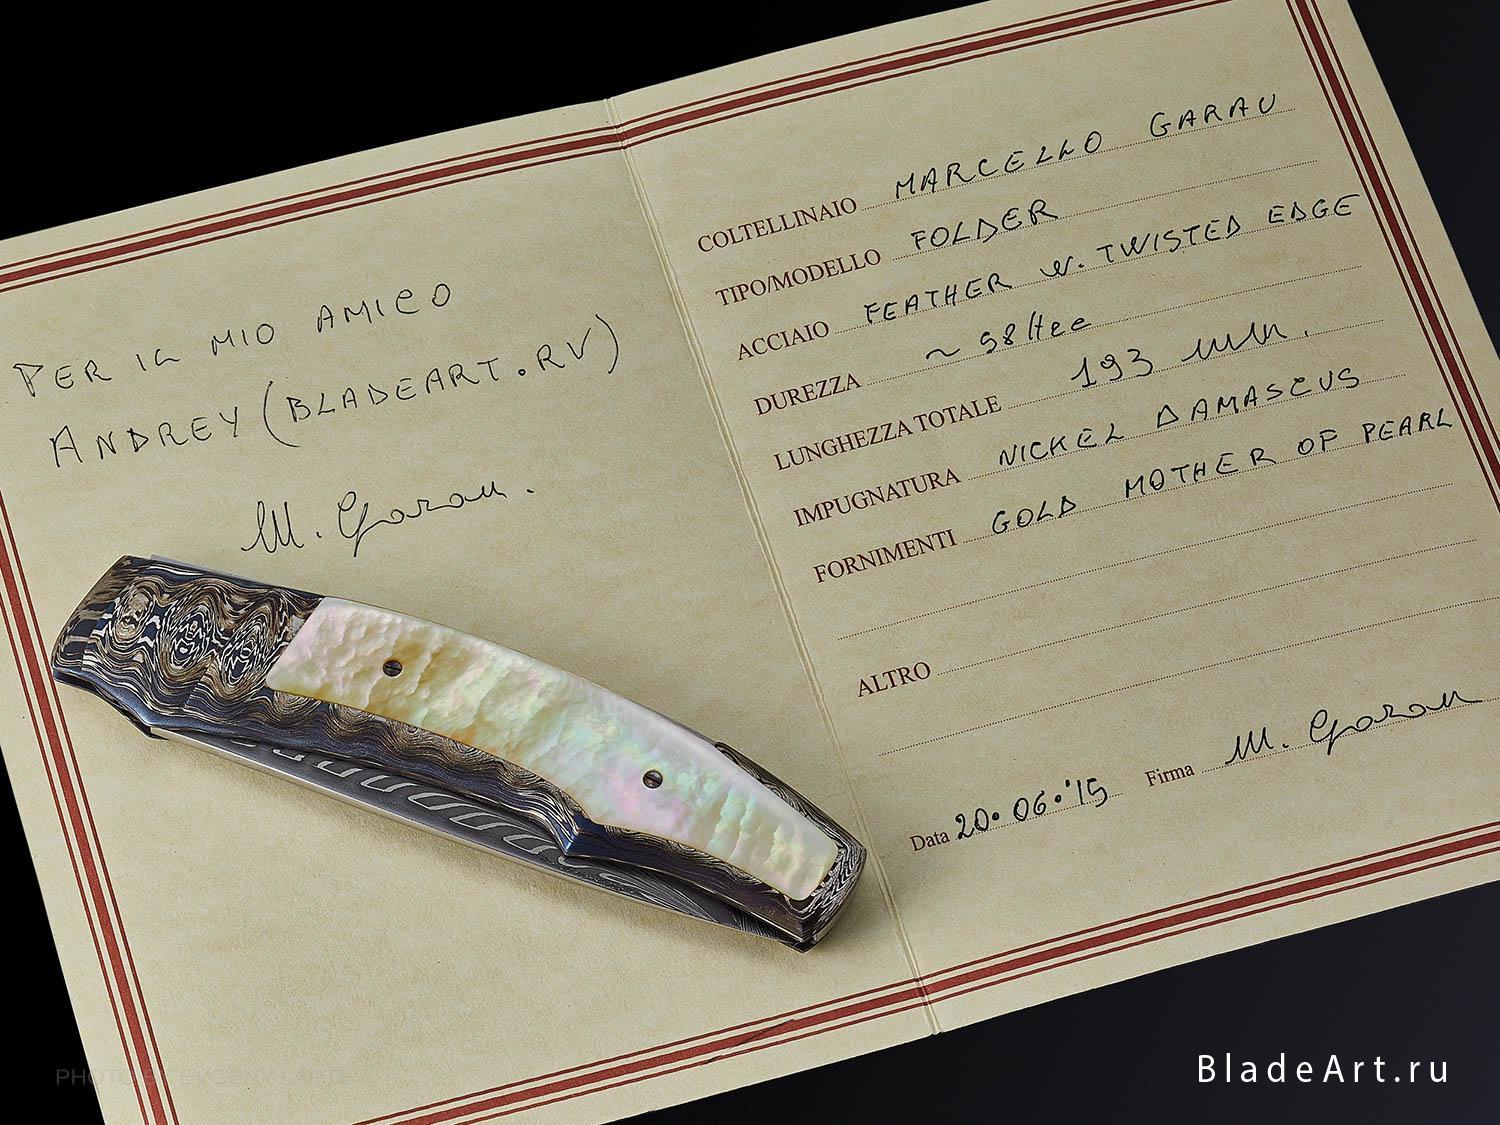 PER IL MIO AMICO
ANDREY (BLADEART.RU)
M. Garau.
COLTELLINAIO MARCELLO GARAU
TIPO/MODELLO FOLDER
ACCIAIO FEATHER W. TWISTED EDGE
DUREZZA ~ 58 Hrc
LUNGHEZZA TOTALE 193 mm.
IMPUGNATURA NICKEL DAMASCUS
FORNIMENTI GOLD MOTHER OF PEARL
ALTRO
Data 20.06.'15 Firma M. Garau
BladeArt.ru
PHOTO BY EVGENY